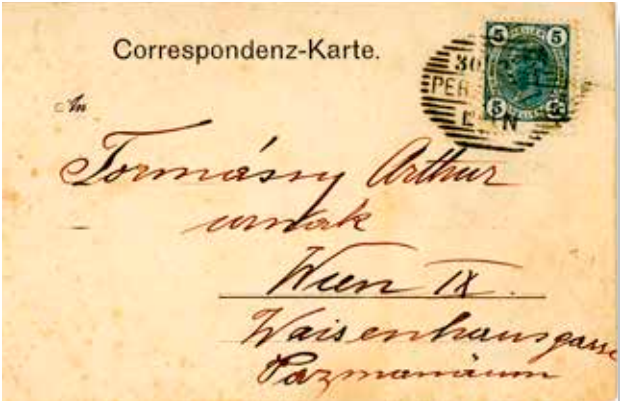 Correspondenz-Karte.
An
5 5
30
PER
5 5
Tormássy Arthur
urnak
Wien IX.
Waisenhausgasse
Pazmanäum